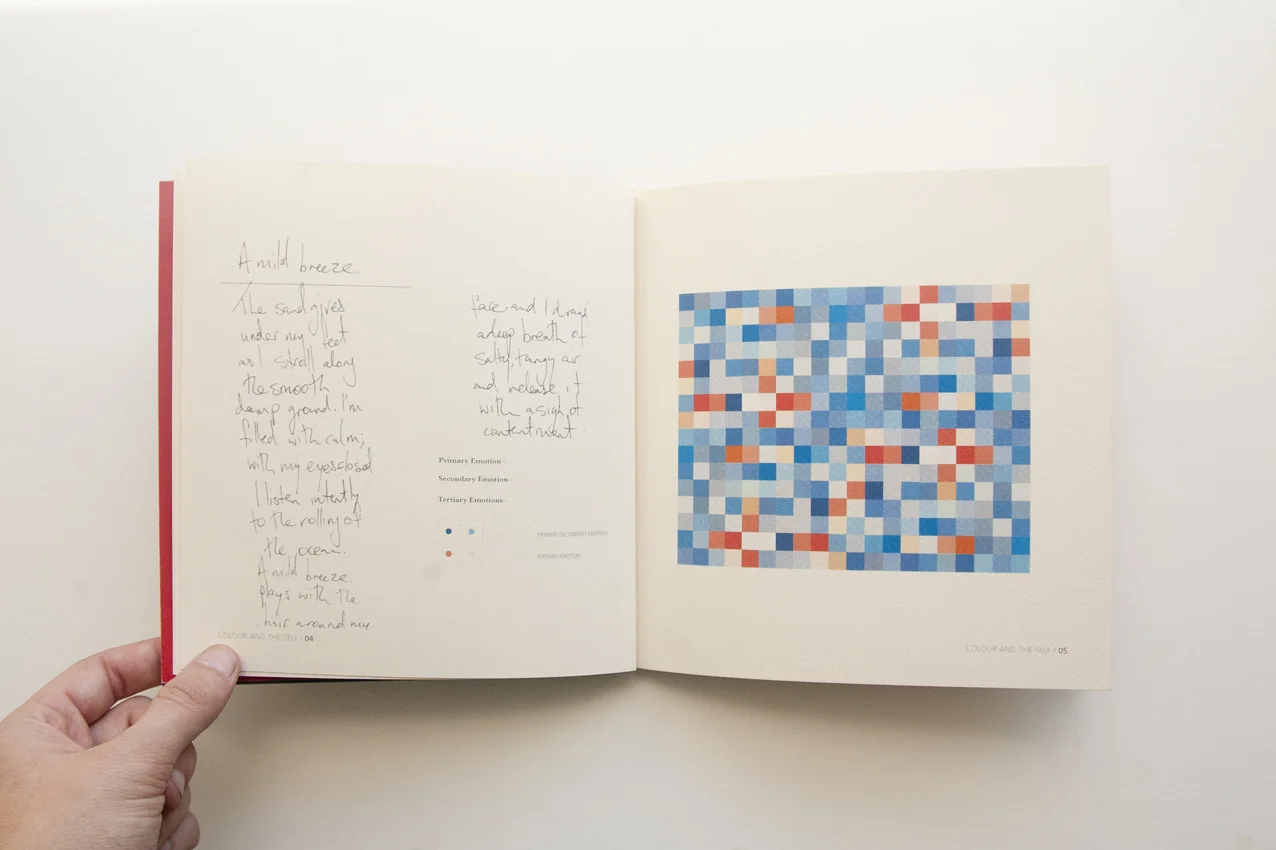 A mild breeze.
The sand gives
under my feet
as I stroll along
the smooth
damp ground. I'm
filled with calm;
with my eyes closed
I listen intently
to the rolling of
the ocean.
A mild breeze
plays with the
hair around my
face and I draw
a deep breath of
salty, tangy air
and release it
with a sigh of
contentment.
Primary Emotion -
Secondary Emotion -
Tertiary Emotions -
PRIMARY/SECONDARY EMOTION
TERTIARY EMOTION
COLOUR AND THE SELF / 04
COLOUR AND THE SELF / 05